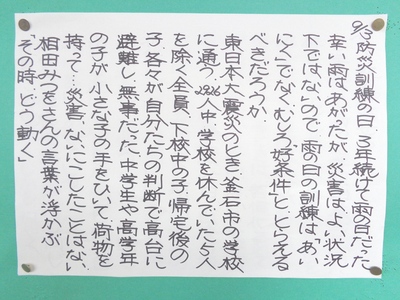 9/3防災訓練の日、3年続けて雨の日だった
幸い雨はあがったが、災害はよい状況
下では、ないので、雨の日の訓練は「あい
にく」でなく、むしろ「好条件」ととらえる
べきだろうか
東日本大震災のとき、釜石市の学校
に通う、2926人中、学校を休んでいた5人
を除く全員、下校中の子、帰宅後の
子、各々が自分たちの判断で高台に
避難し、無事だった。中学生や高学年
の子が、小さな子の手をひいて、荷物を
持って…災害、ないにこしたことはない
相田みつをさんの言葉が浮かぶ
「その時、どう動く」